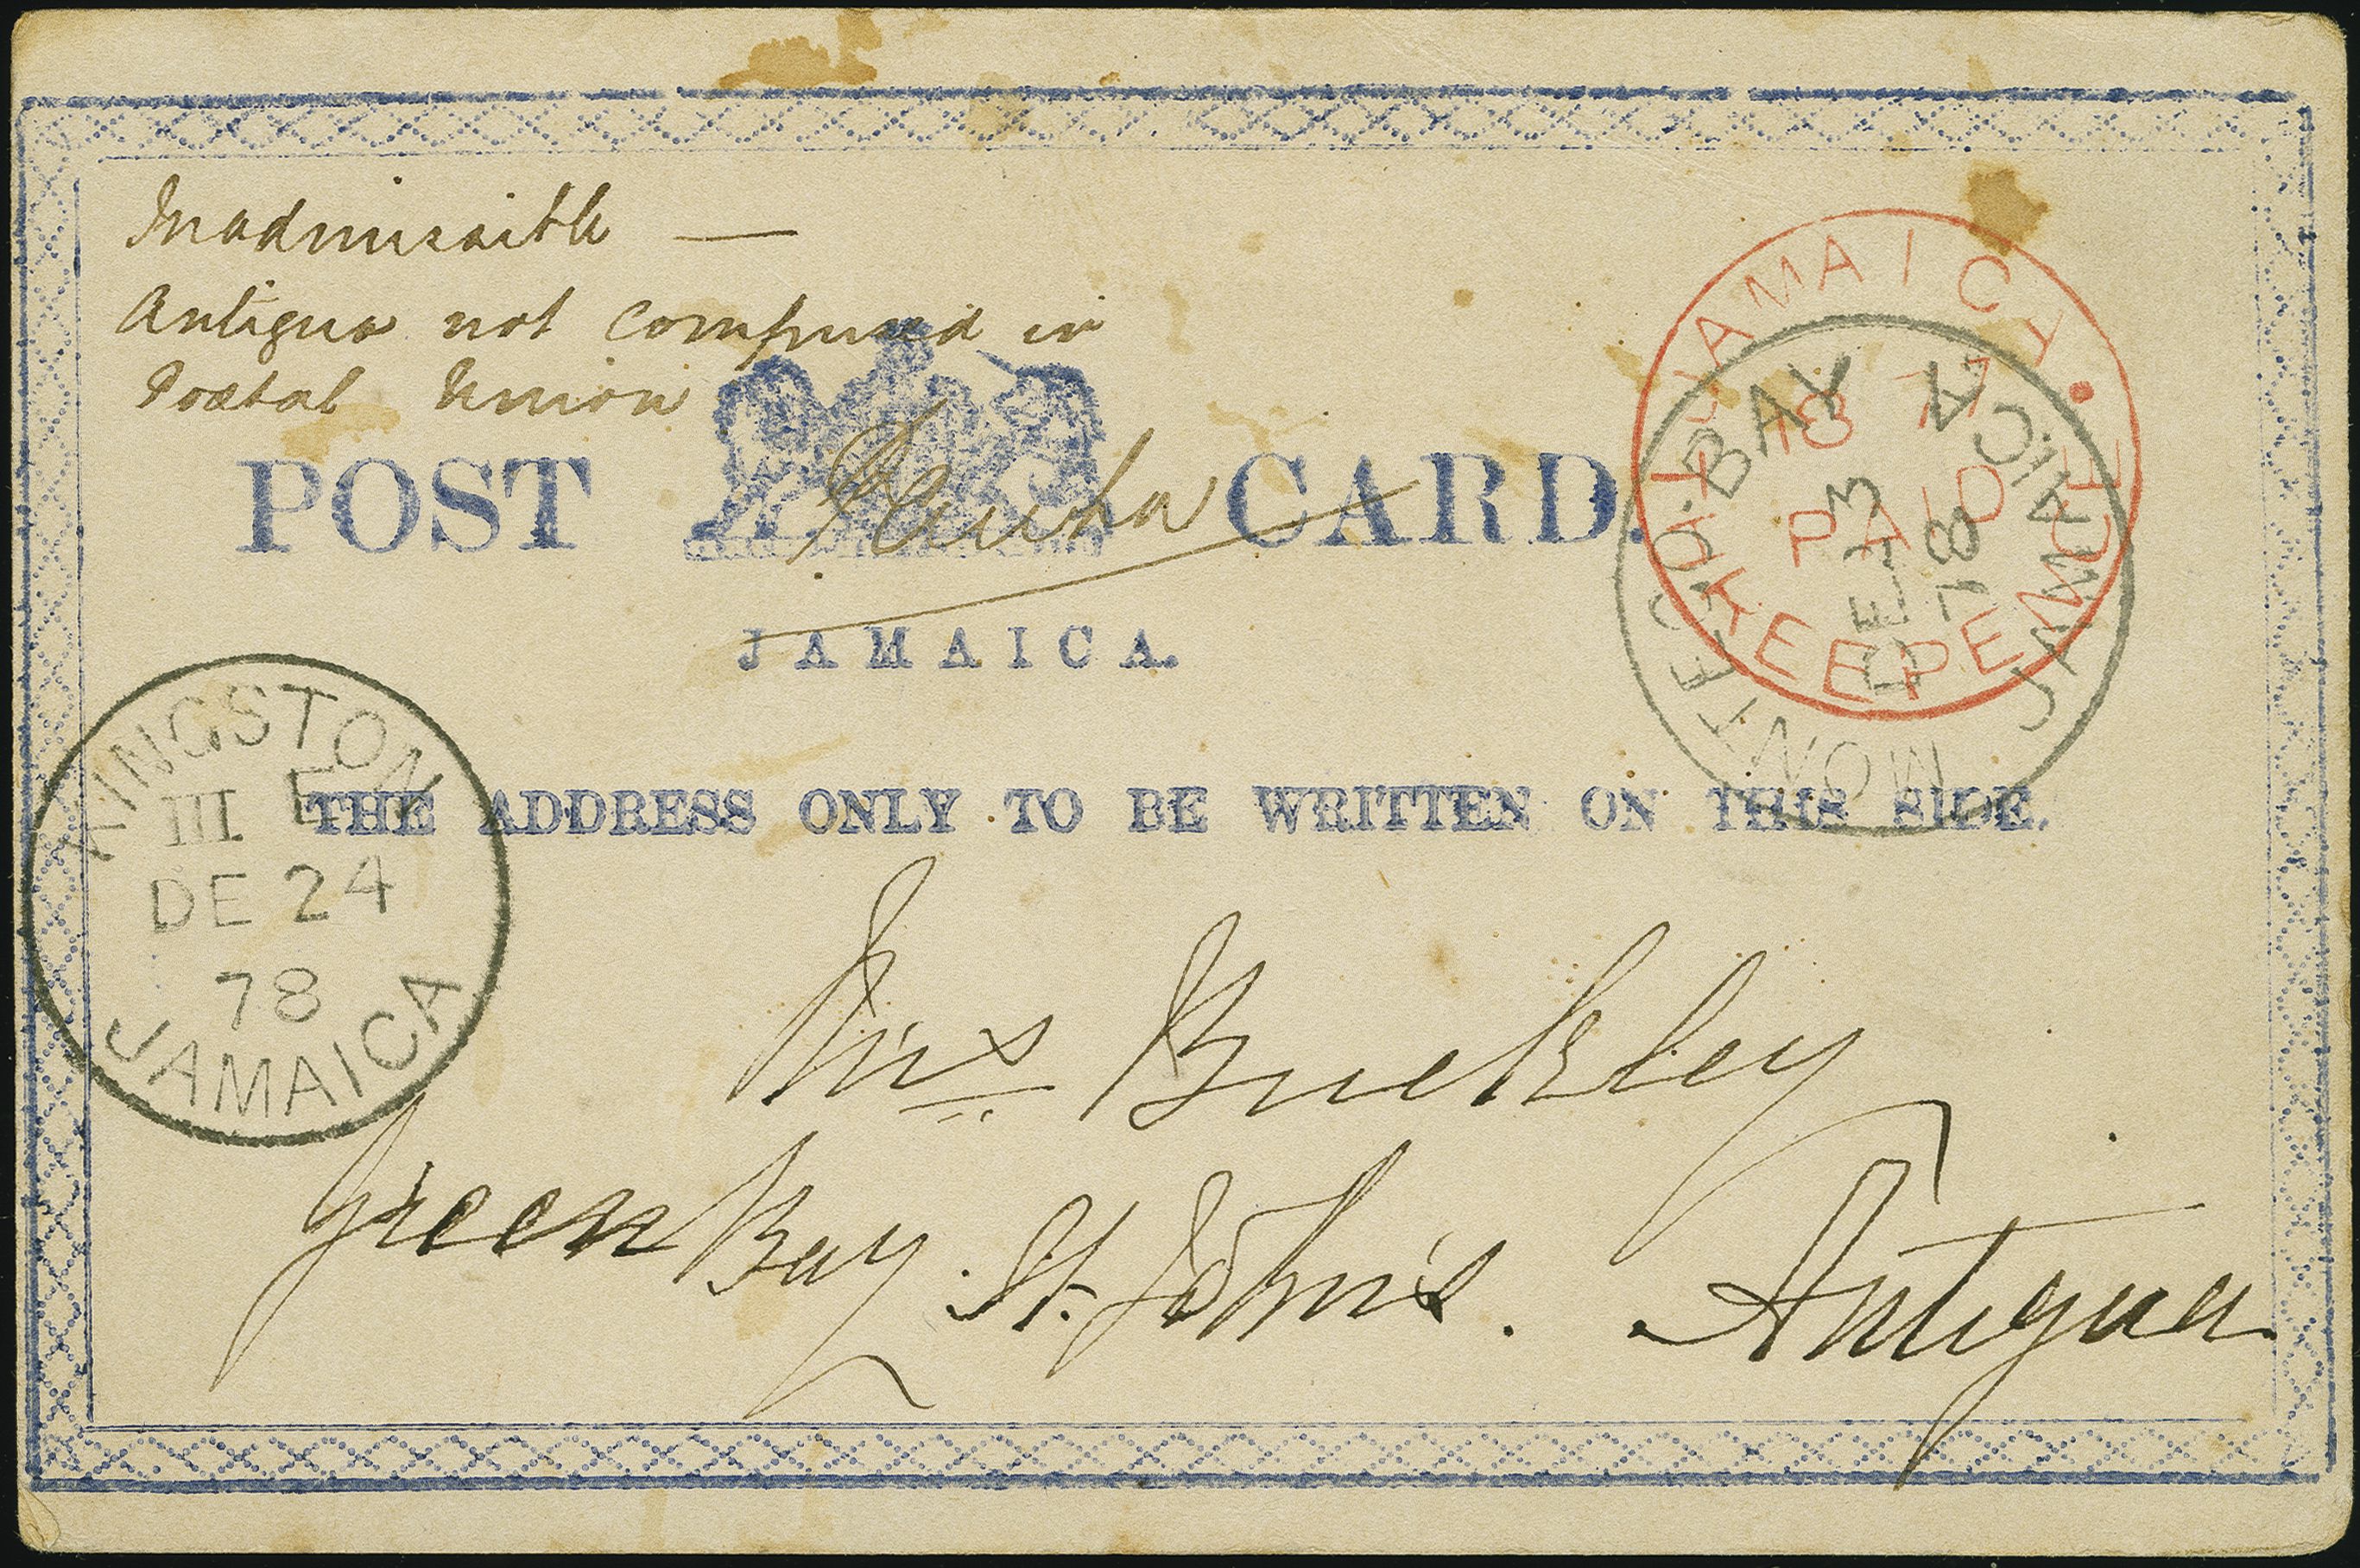 Inadmissible —
Antigua not comprised in
Postal Union
POST CARD.
JAMAICA.
THE ADDRESS ONLY TO BE WRITTEN ON THIS SIDE.
JAMAICA.
1877
PAID
KEEPE
MONTEGO·BAY
DE 13
78
JAMAICA
KINGSTON
III E
DE 24
78
JAMAICA
Mrs Buckley
Green Bay St. John's. Antigua